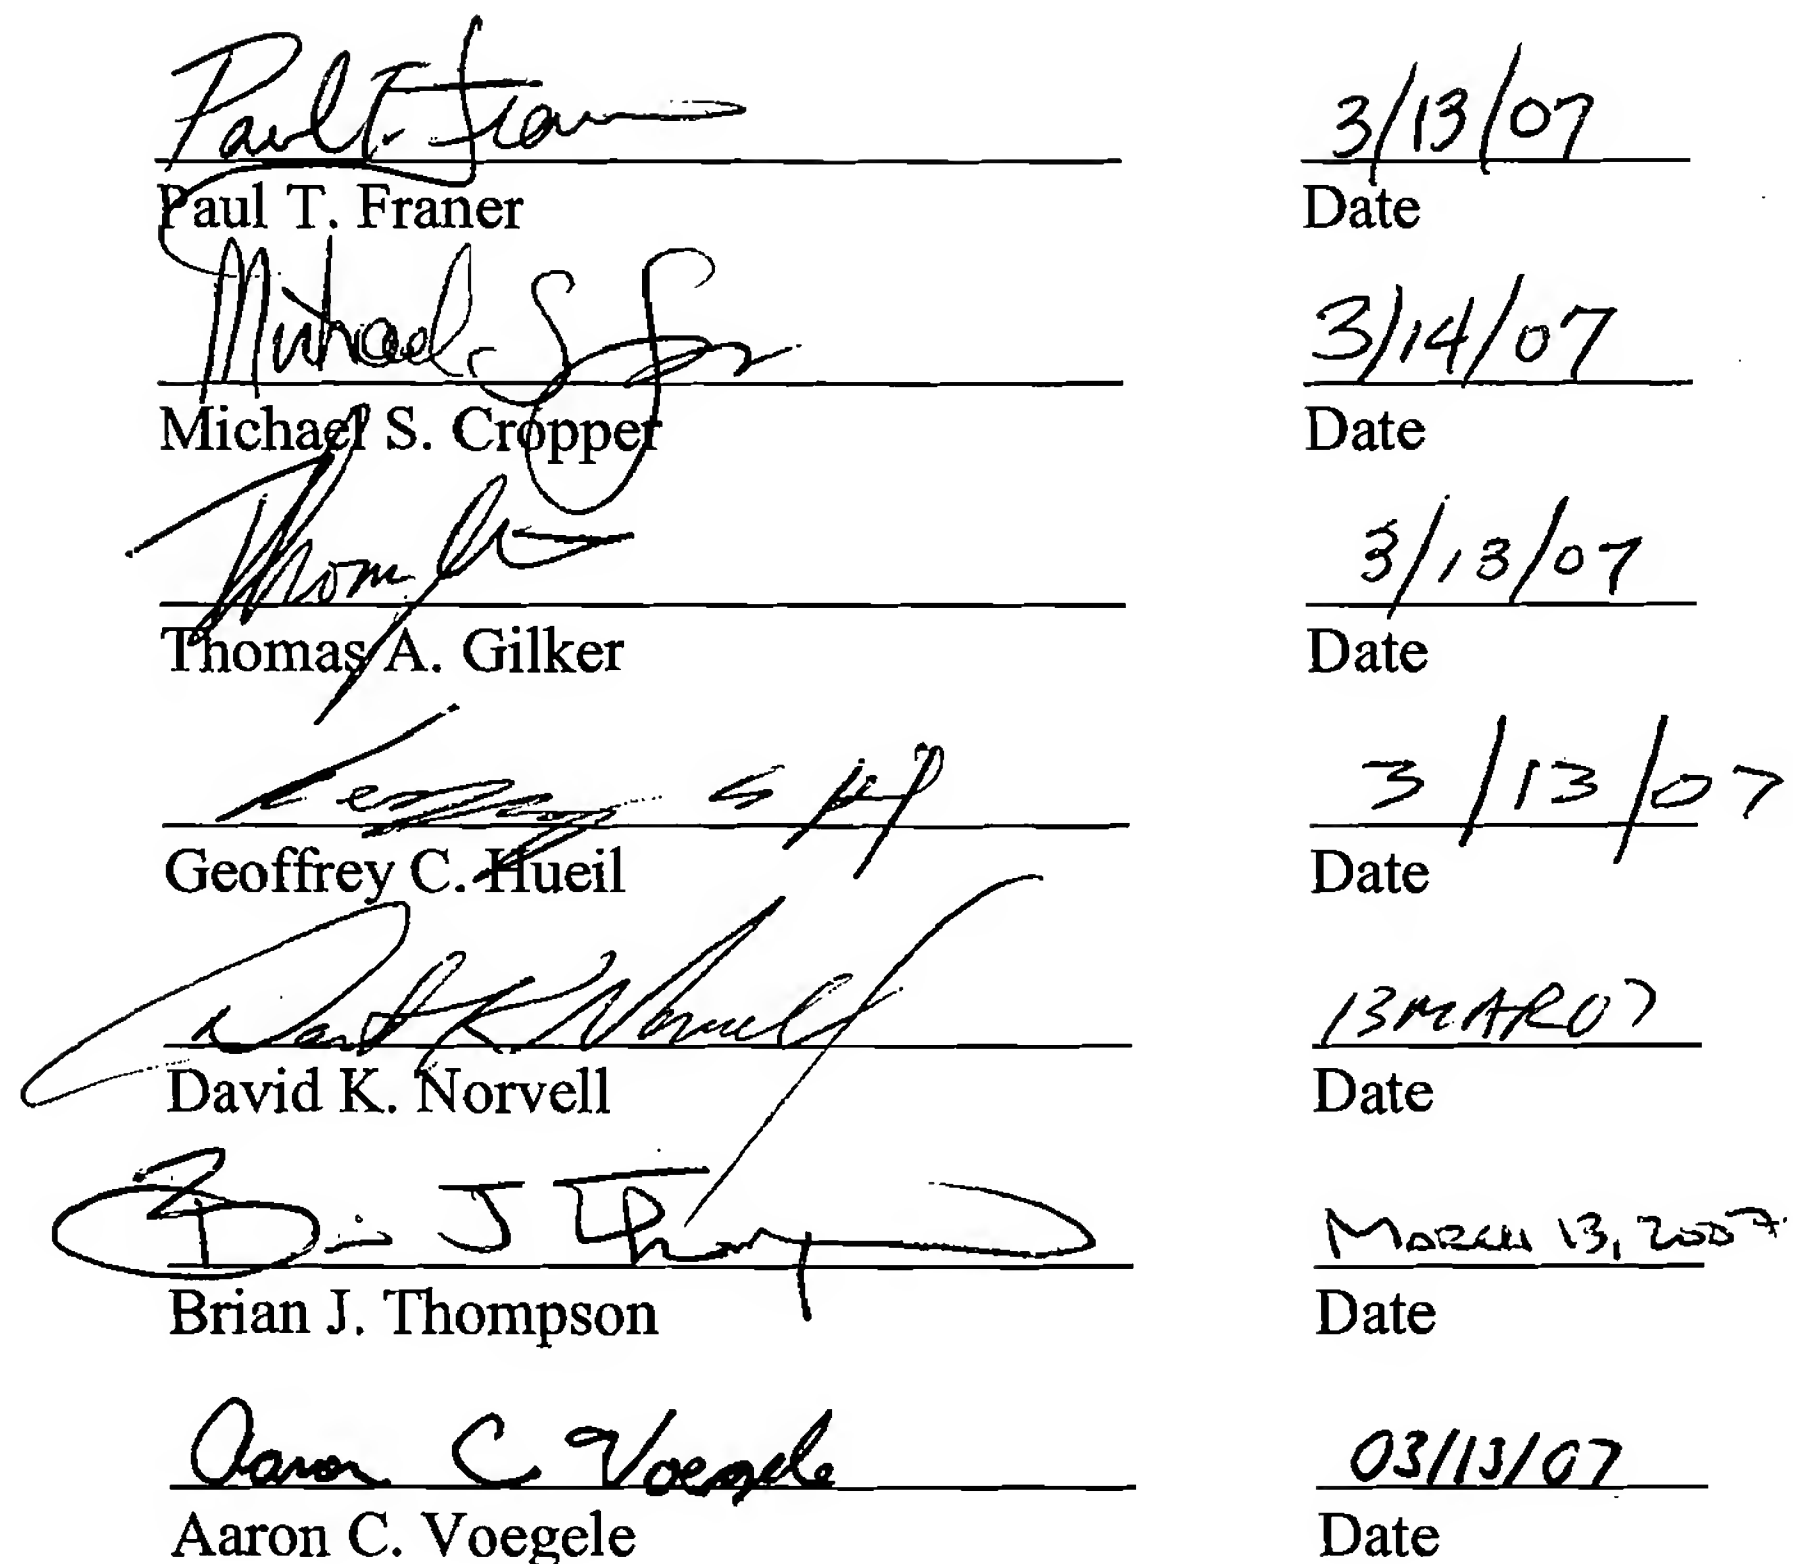 Paul T. Franer 3/13/07
Paul T. Franer Date
Michael S. 3/14/07
Michael S. Cropper Date
Thomas 3/13/07
Thomas A. Gilker Date
3/13/07
Geoffrey C. Hueil Date
David K Norvell 13MAR07
David K. Norvell Date
Brian J Thompson March 13, 2007
Brian J. Thompson Date
Aaron C Voegele 03/13/07
Aaron C. Voegele Date